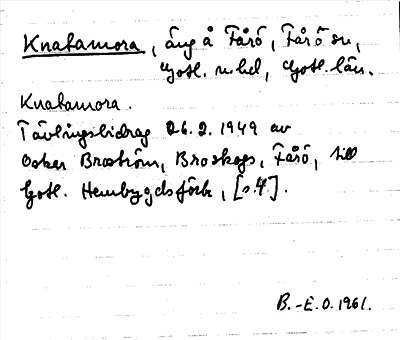 Knatamora, äng å Fårö, Fårö sn,
Gotl. n. hd, Gotl. län.
Knatamora.
Tävlingsbidrag 26.2.1949 av
Oskar Broström, Broskogs, Fårö, till
Gotl. Hembygdsförb, [s.4].
B.-E.O. 1961.